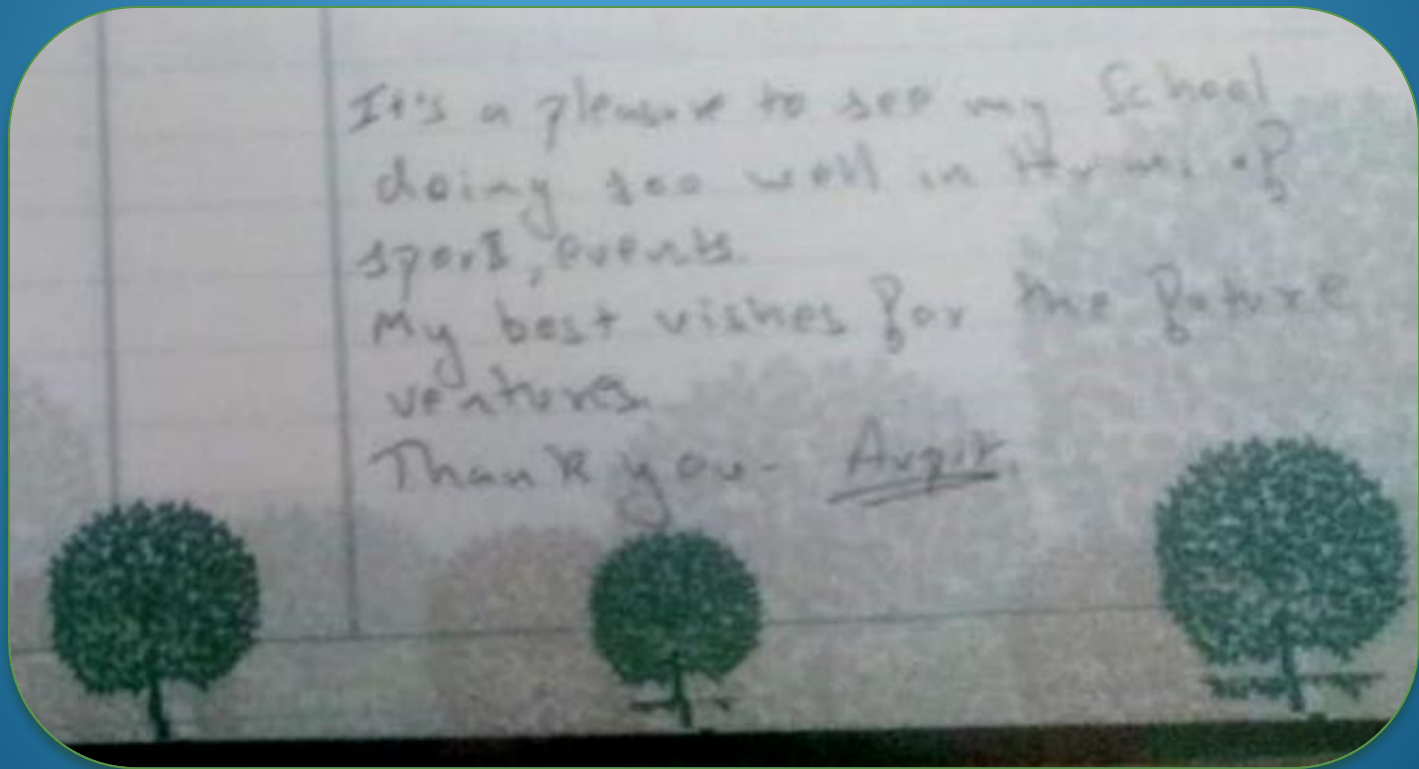 It's a pleasure to see my School
doing soo well in terms of
sports, events.
My best vishes for the future
ventures.
Thank you -